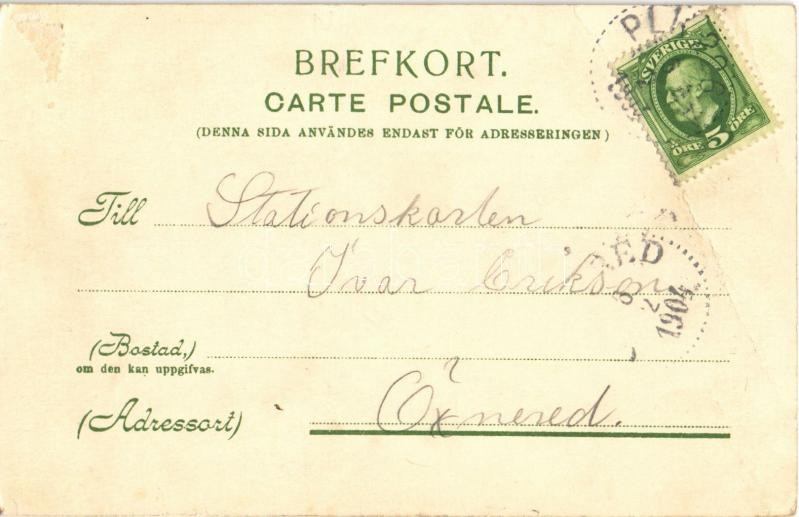 BREFKORT.
CARTE POSTALE.
(DENNA SIDA ANVÄNDES ENDAST FÖR ADRESSERINGEN)
SVERIGE
ÖRE 5 ÖRE
Till Stationskarlen
Ivar Erikson
RED
2
1904
(Bostad,)
om den kan uppgifvas.
(Adressort) Öxnered.